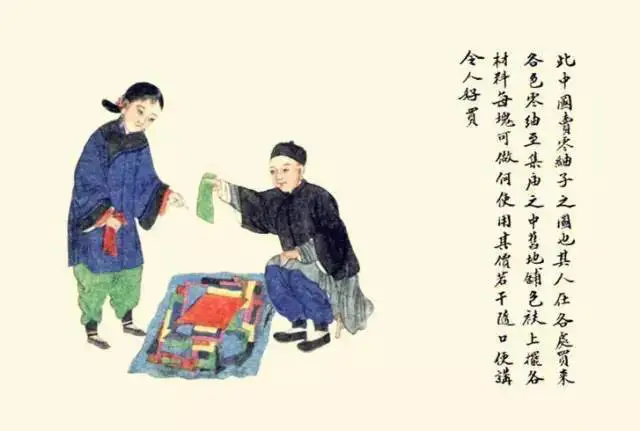 此中國賣零紬子之圖也其人在各處買來
各色零紬至集庙之中舊地舖包袱上擺各
材料每塊可做何使用其價若干隨口便講
令人好買